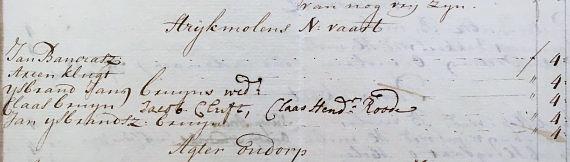 van nog vry zyn.
Strijkmolens N: vaart
Jan Bancratz ƒ 4
Arien Klugt " 4
ysbrand Jansz Cruyns wed:e " 4
Claas Cruyn Jacob Cluft, Claas Hendr. Roode " 4
Jan ysbrandtz: Cruyn " 4
Agter Oudorp